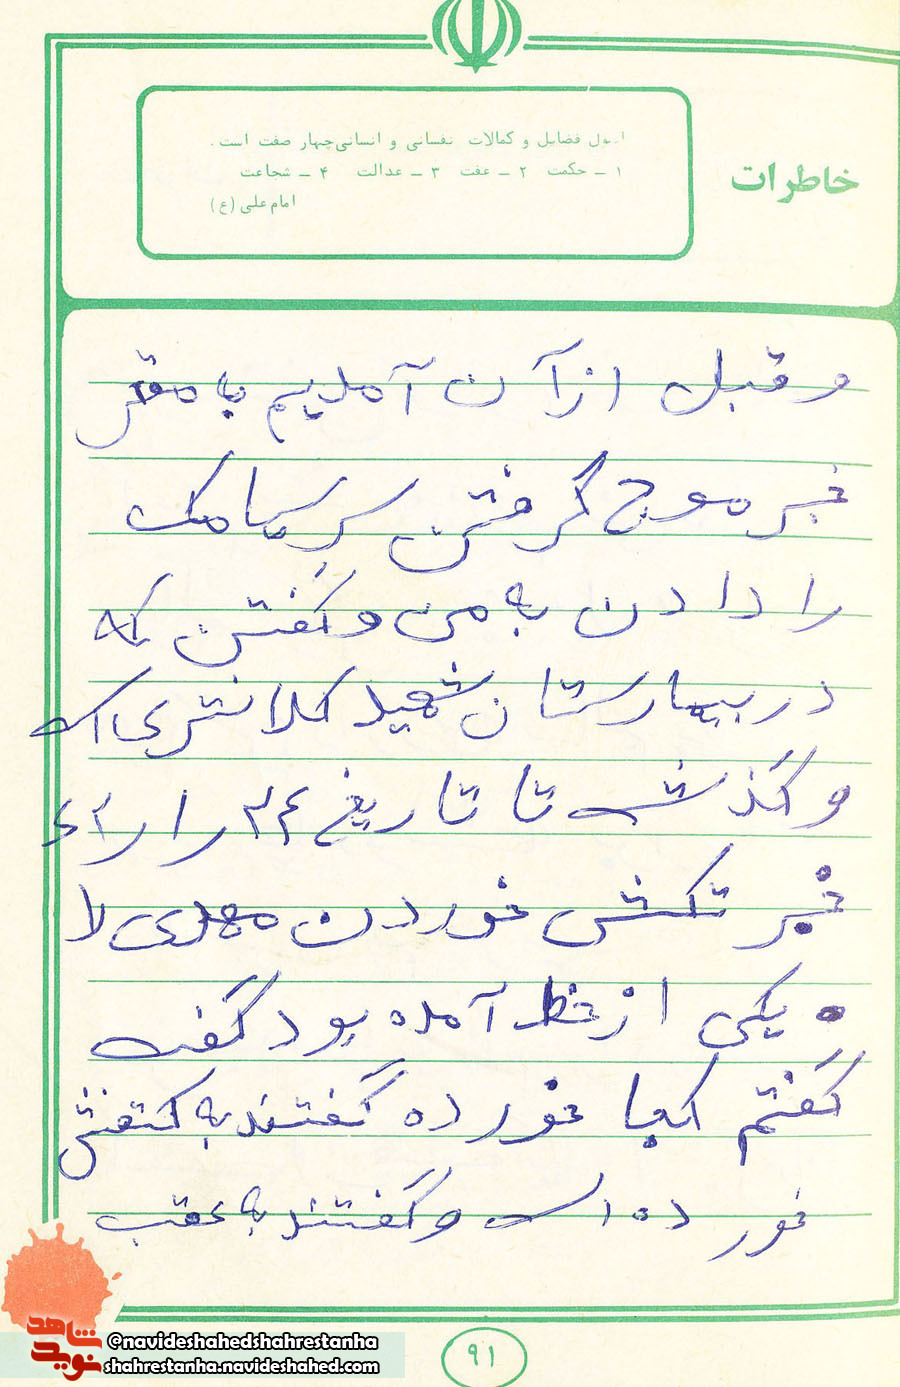 اصول فضایل و کمالات نفسانی و انسانی چهار صفت است.
۱ ــ حکمت ۲ ــ عفت ۳ ــ عدالت ۴ ــ شجاعت
امام علی (ع)
خاطرات
و قبل از آن آمدیم با مقر
خبر موج گرفتن سر سیامک
را دادن به من و گفتن که
در بیمارستان شهید کلانتری است
و گذشت تا تاریخ ۲۴ را
خبر ترکش خوردن مهدی را
یکی از خط آمده بود گفت
گفتم کجا خورده گفتند به کتفش
خورده است و گفتند به عقب
۹۱
شاهد
نوید
@navideshahedshahrestanha
shahrestanha.navideshahed.com